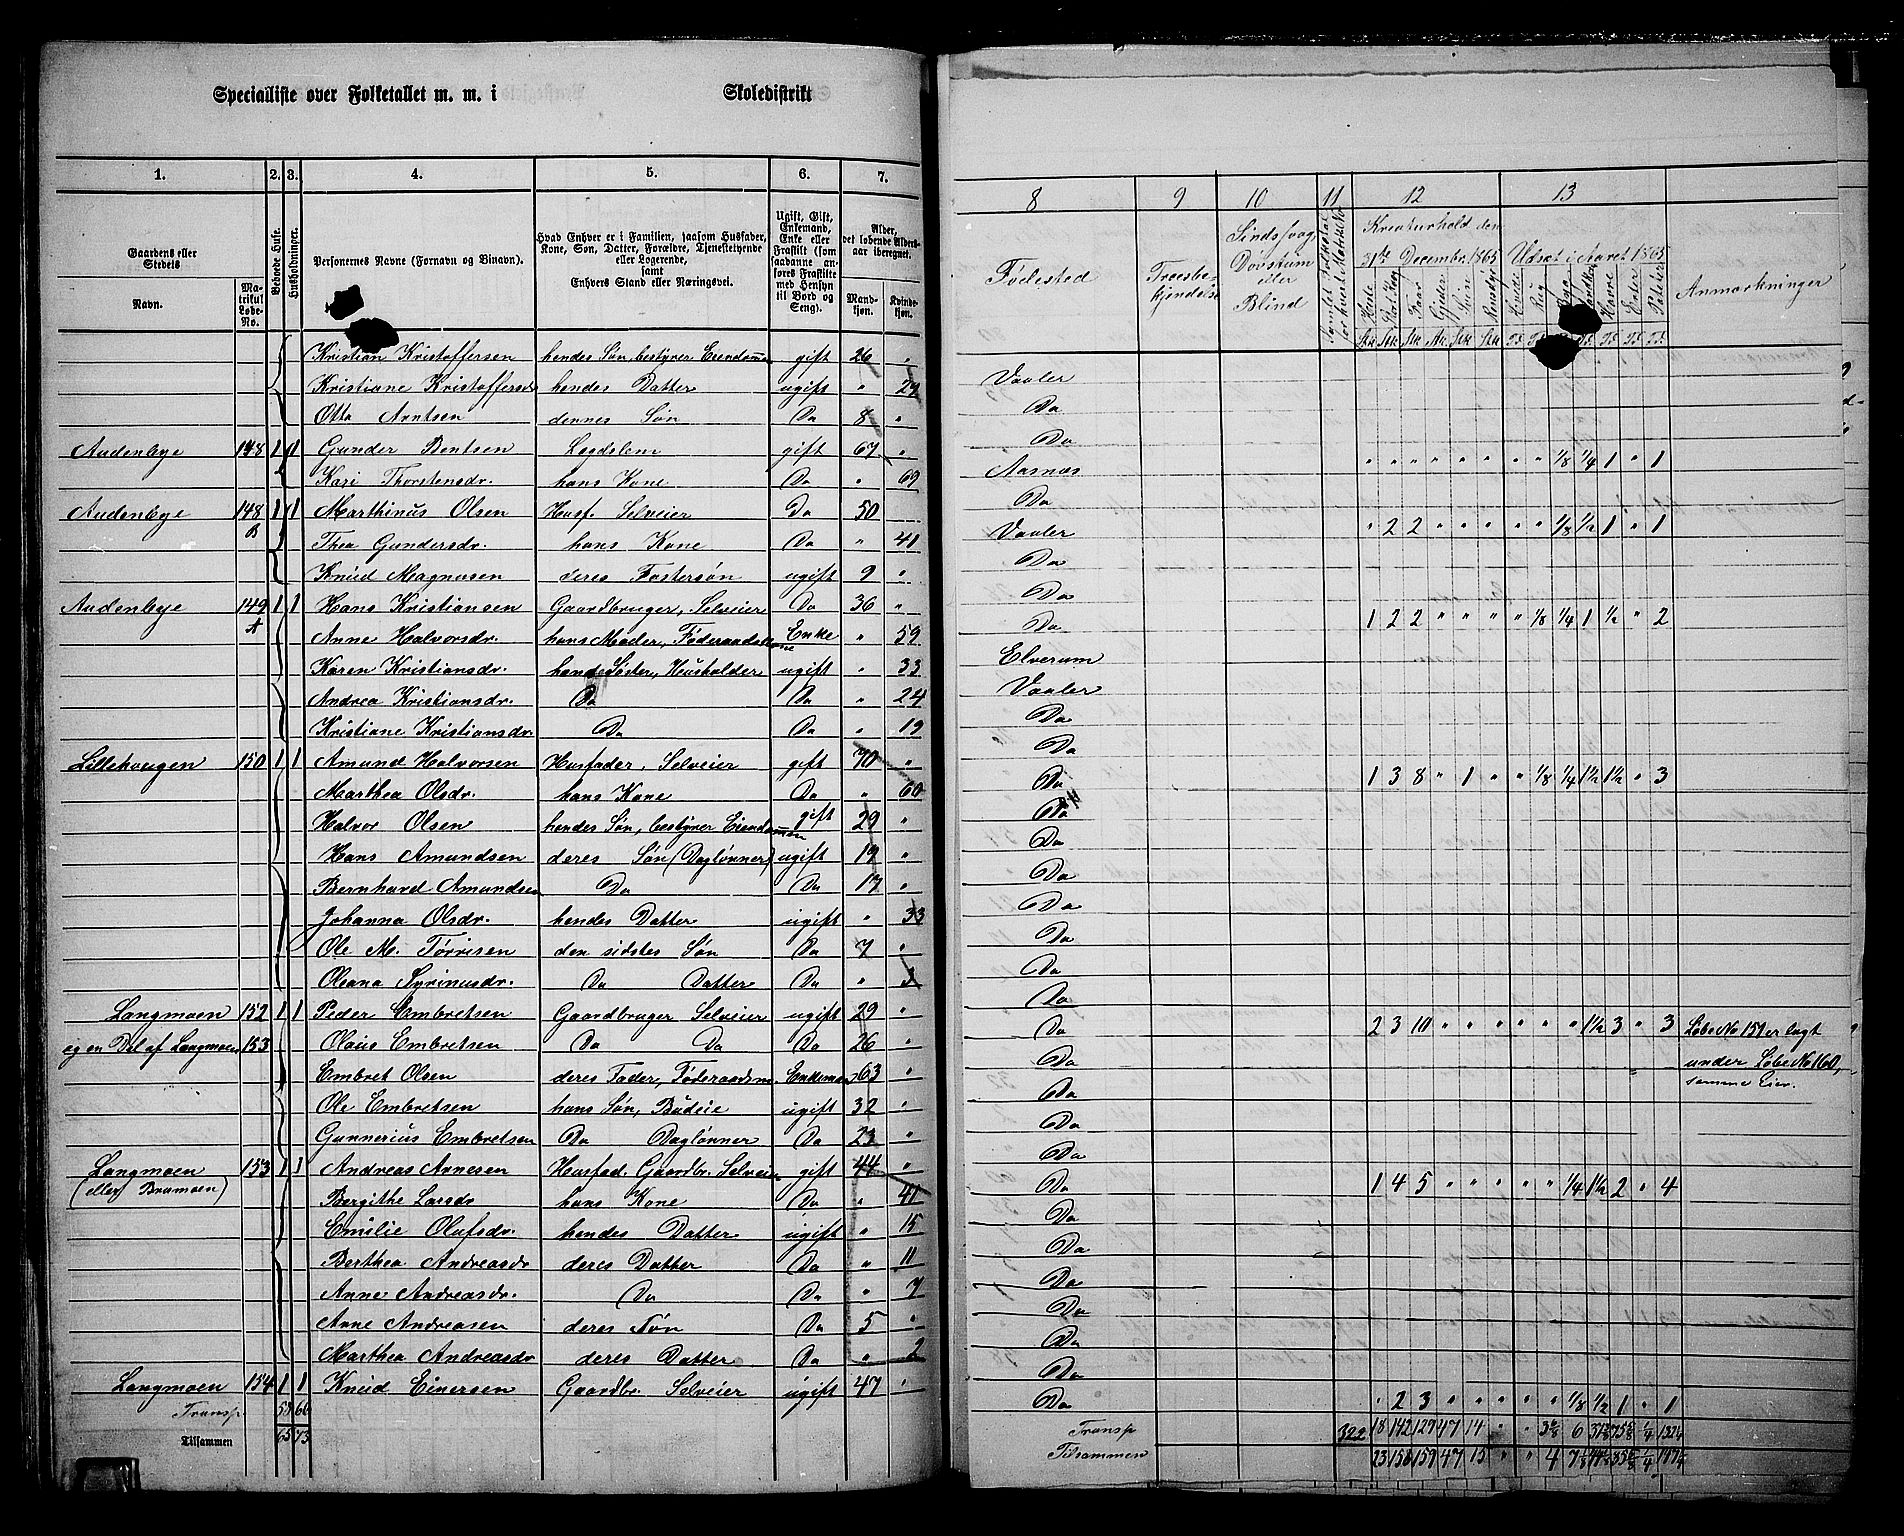 Specialliste over Folketallet m. m. i Skoledistrikt
1. 2. 3. 4. 5. 6. 7.
Gaardens eller Stedets
Navn. Matrikul Løbe-No.
Beboede Huse.
Husholdninger.
Personernes Navne (Fornavn og Binavn).
Hvad Enhver er i Familien, saasom Husfader, Kone, Søn, Datter, Forældre, Tjenestetyende eller Logerende, samt Enhvers Stand eller Næringsvei.
Ugift, Gift, Enkemand, Enke eller Fraskilt (som saadanne anføres Fraskilte med Hensyn til Bord og Seng).
Alder, det løbende Alders-aar iberegnet.
Mand-kjøn. Kvinde-kjøn.
Kristian Kristoffersen hendes Søn, bestyrer Eiendommen gift 26 "
Kristiane Kristoffersdr. hendes Datter ugift " 29
Otto Arntsen dennes Søn Do 8 "
Audenbye 148 1 1 Gunder Bentsen Lægdslem gift 67 "
Kari Thorstensdr. hans Kone Do " 69
Audenbye 148 B 1 1 Marthinus Olsen Husf. Selveier Do 50
Thea Gundersdr. hans Kone Do " 41
Knud Magnusen deres Fostersøn ugift 9 "
Audenbye 149 A 1 1 Hans Kristiansen Gaardbruger, Selveier Do 36 "
Anne Halvorsdr. hans Moder, Føderaadskone Enke " 59
Karen Kristiansdr. hendes Søster, Husholder ugift " 33
Andrea Kristiansdr. Do Do " 24
Kristiane Kristiansdr. Do Do " 19
Lillehaugen 150 1 1 Amund Halvorsen Husfader, Selveier gift 70 "
Marthea Olsdr. hans Kone Do " 60
Halvor Olsen hendes Søn, bestyrer Eiendommen gift 29 "
Hans Amundsen deres Søn (Dagløner) ugift 19 "
Bernhard Amundsen Do Do 17 "
Johanna Olsdr. hendes Datter ugift " 33
Ole M. Torrisen den sidstes Søn Do 7 "
Oleana Syrinusdr. Do Datter Do " 3
Langmoen 152 1 1 Peder Embretsen Gaardbruger Selveier ugift 29 "
og en Del af Langmoen 153 Olaus Embretsen Do Do Do 26 "
Embret Olsen deres Fader, Føderaadsm. Enkeman 63 "
Ole Embretsen hans Søn, Bødeie ugift 32 "
Gunnerius Embretsen Do Dagløner Do 23 "
Langmoen 153 1 1 Andreas Arnesen Husfad. Gaardbr. Selveier gift 44 "
(eller Bramoen) Bergithe Larsdr hans Kone Do " 41
Emilie Olufsdr. hendes Datter ugift " 15
Berthea Andreasdr deres Datter Do " 11
Anne Andreasdr. Do Do " 7
Arne Andreasen deres Søn Do 5 "
Marthea Andreasdr deres Datter Do " 2
Langmoen 154 1 1 Knud Einersen Gaardbr. Selveier ugift 47 "
Transp 59 66
Tilsammen 65 73
8 9 10 11 12 13
Fødested
Troesbekjendelse
Sindssvag Døvstum eller Blind
Kreaturhold den 31te December 1865
Udsæt i Aaret 1865
Anmærkninger
Vaaler
Do
Do
Aasnæs " " " " " " " " 1/8 1/4 1 " 1
Do
Vaaler " 2 2 " " " " " 1/8 1/2 1 " 1
Do
Do
Do 1 2 2 " " " " 1/8 1/4 1 1/2 " 2
Elverum
Vaaler
Do
Do
Do 1 3 8 " 1 " " 1/8 1/4 1 1/2 1 1/2 " 3
Do
Do
Do
Do
Do
Do
Do
Do 2 3 10 " " " " " " 1 1/2 3 " 3 Løbe No 151 er lagt
Do under Løbe No 160,
Do samme Eier.
Do
Do
Do 1 4 5 " " " " " 1/4 1 1/2 2 " 4
Do
Do
Do
Do
Do
Do
Do " 2 3 " " " " " 1/8 1/2 1 " 1
Transp 322 18 142 129 47 14
Tilsammen 23 158 159 47 15